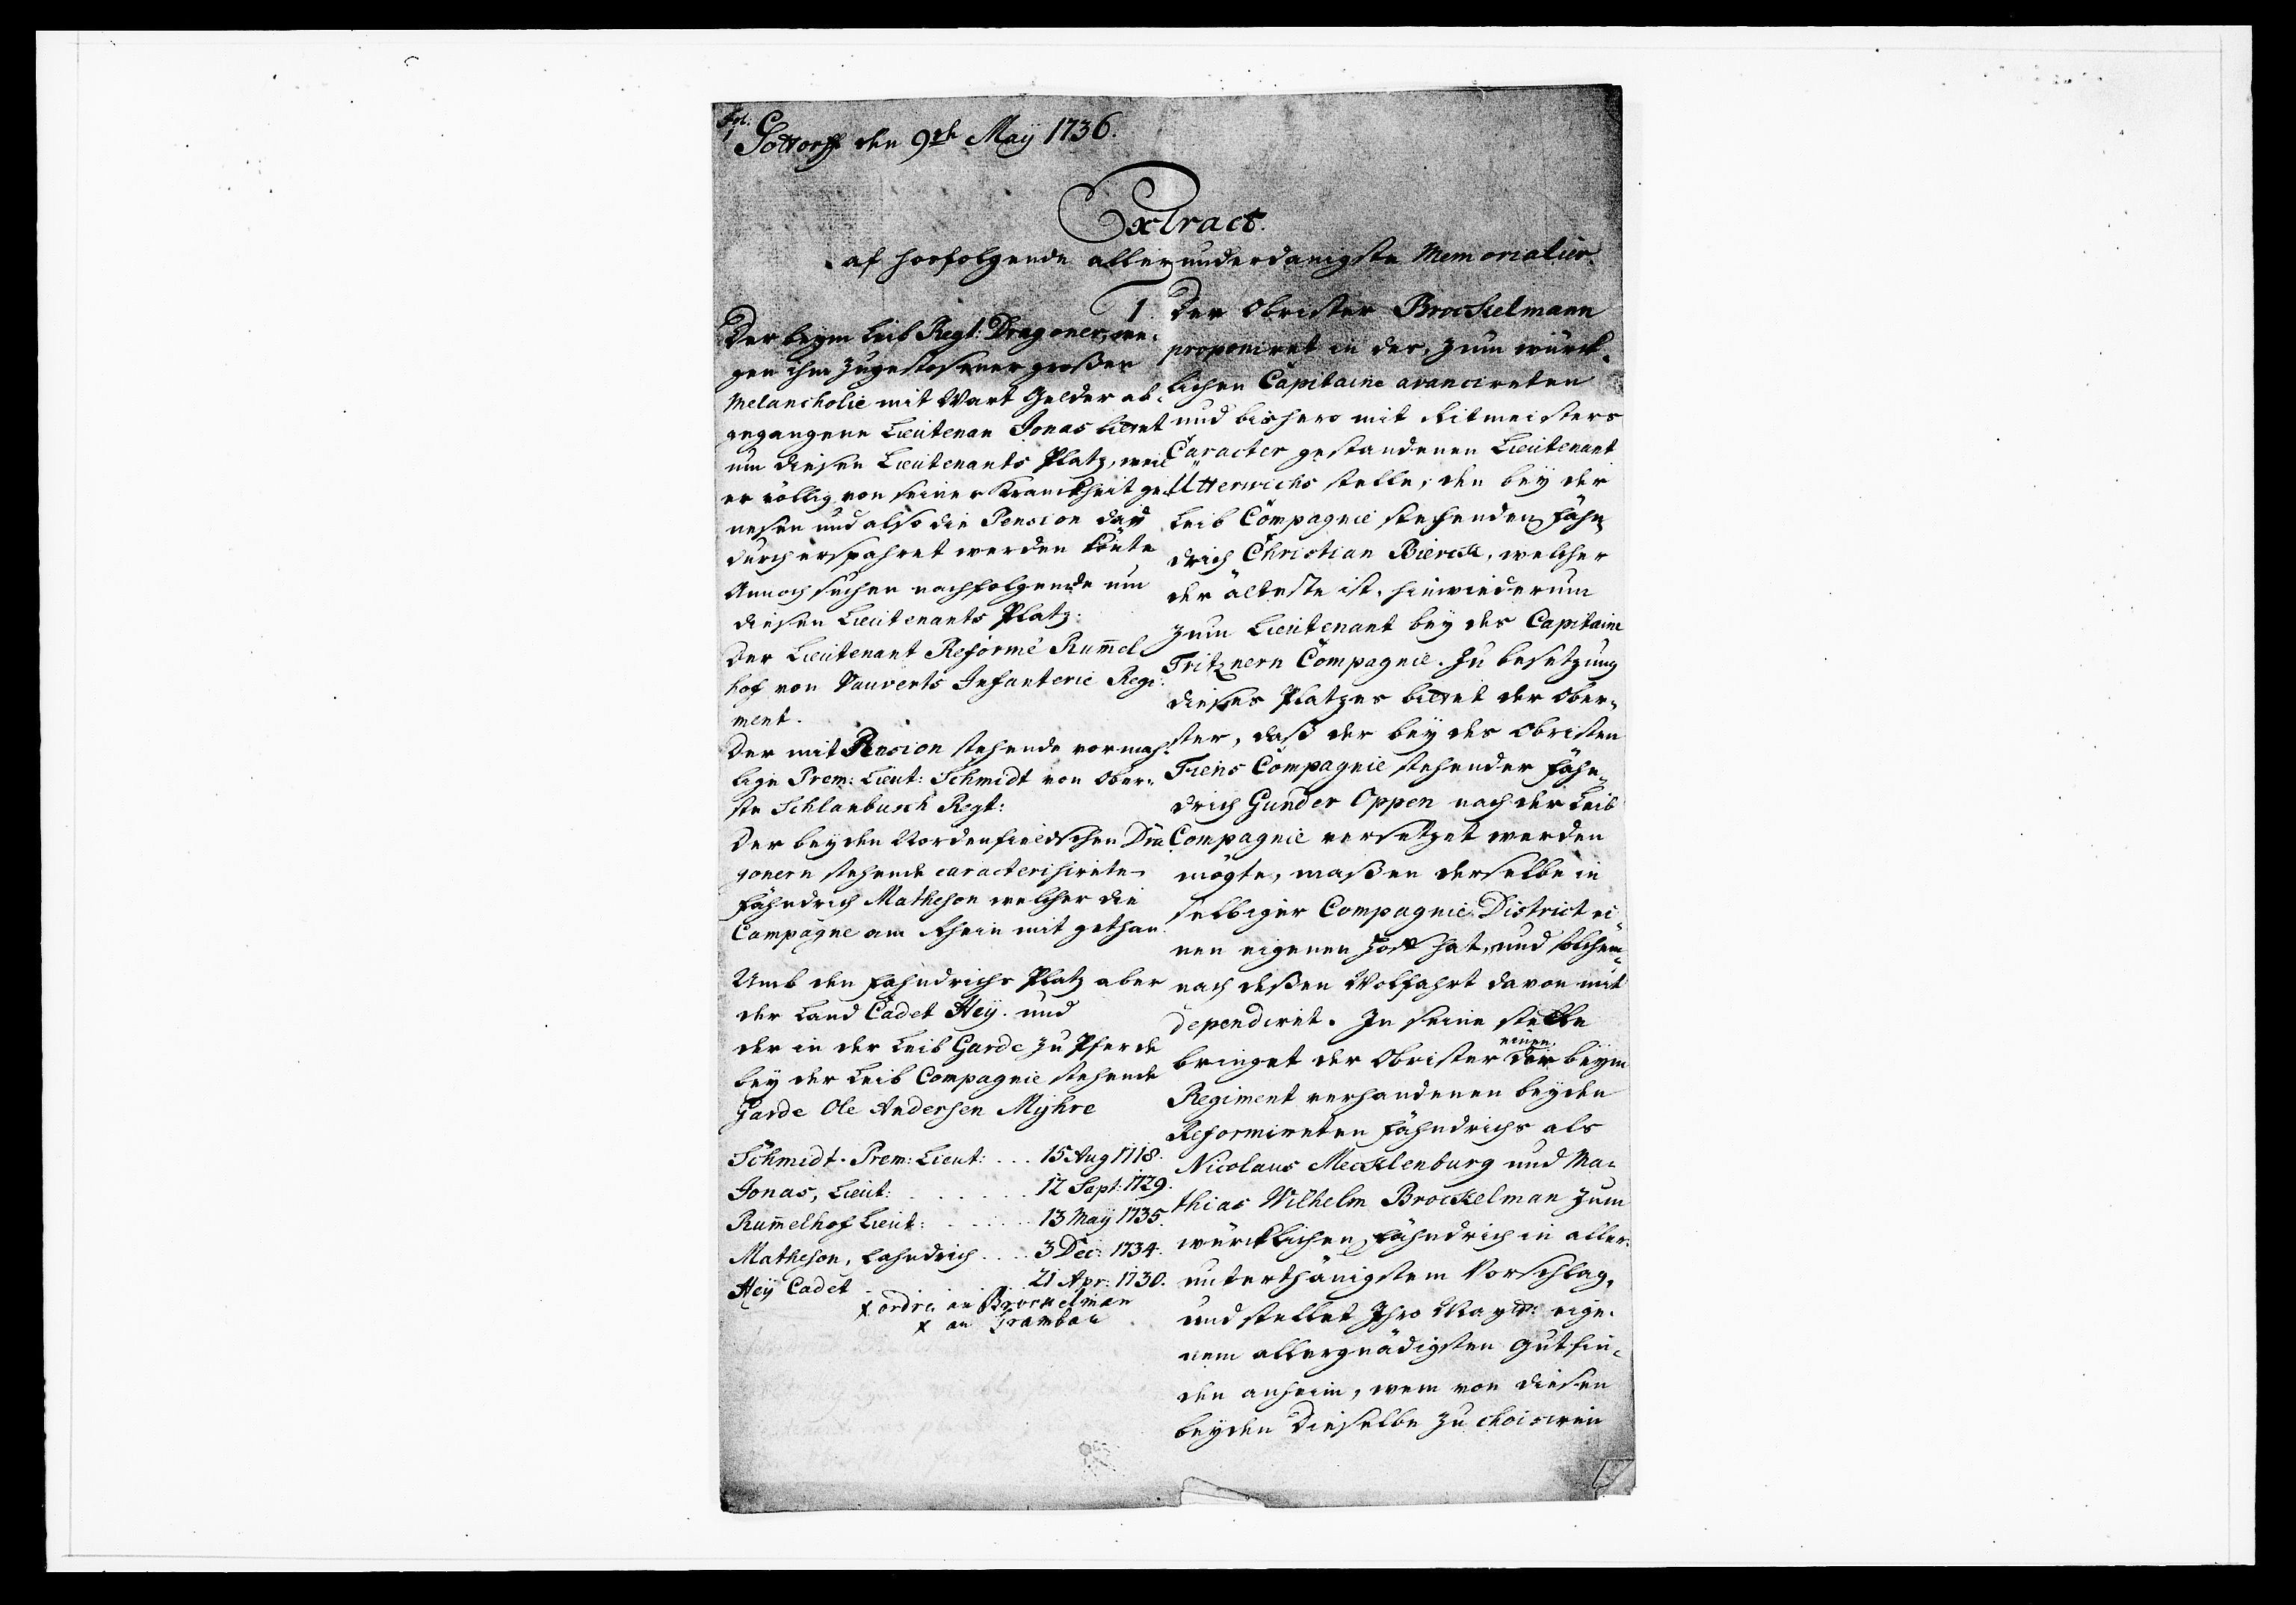 Fol:
1
Gottorff den 9th Maÿ 1736.
Extract
af hoosfolgende allerunderdanigste Memorialier
1.
Der beym Leib Regt: Dragoner, we-
gen ihm zugestosener großer
Melancholie mit Wart Gelder ab-
gegangene Lieutenan Jonas bittet
um diesen Lieutenants Platz, weil
er völlig von seiner Kranckheit ge-
nesen und also die Pension da
durch erspahret werden könte
Annoch suchen nachfolgende um
diesen Lieutenants Platz.
Der Lieutenant Reformé Rum̄el
hof von Vauverts Infanterie Regi-
ment.
Der mit Pension stehende vormah-
lige Prem: Lieut: Schmidt von Ober-
ste Schlanbusch Regt:
Der bey den Nordenfieldschen Dra
gonern stehende caracterisirte
Fähndrich Matheson welcher die
Campagne am Rhein mit gethan
Umb den Fähndrichs Platz aber
der Land Cadet Heÿ. und
der in der Leib Garde zu Pferde
bey der Leib Compagnie stehende
Garde Ole Andersen Mÿhre
Schmidt. Prem: Lieut: ... 15 Aug 1718.
Jonas, Lieut: ....... 12 Sept: 1729.
Rum̄elhof Lieut: ...... 13 Maÿ 1735.
Matheson, Fahndrich .... 3 Dec: 1734.
Heÿ Cadet ... 21 Apr: 1730.
x ordre an Brockelman
x an Trambau
Der Obrister Brockelmann
proponiret in des, zum würck-
lichen Capitaine avancireten
und bishero mit Ritmeisters
Caracter gestandenen Lieutenant
Ütterwichs stelle, den bey der
Leib Compagnie stehenden Fähn
drich Christian Bierck, welcher
der älteste ist, hinwiederum
zum Lieutenant bey des Capitaine
Tritznern Compagnie. Zu besetzung
dieses Platzes bittet der Ober-
ster, daß der bey des Obristen
Fiens Compagnie stehender Fähn-
drich Gunder Oppen nach der Leib
Compagnie versetzet werden
mögte, maßen derselbe in
selbiger Compagnie District ei-
nen eigenen Hoff hat, und solchem-
nach deßen Wolfahrt davon mit
dependiret. In seine stelle
einen
bringet der Obrister der beym
Regiment verhandenen beyden
Reformireten Fähndrichs als
Nicolaus Mecklenburg und Ma-
thias Wilhelm Brockelman zum
würcklichen Fähndrich in aller-
unterthänigstem Vorschlag,
und stellet Ihro Mayts: eige-
nem allergnädigsten Gutfin-
den anheim, wem von diesen
beyden Dieselbe zu choisiren